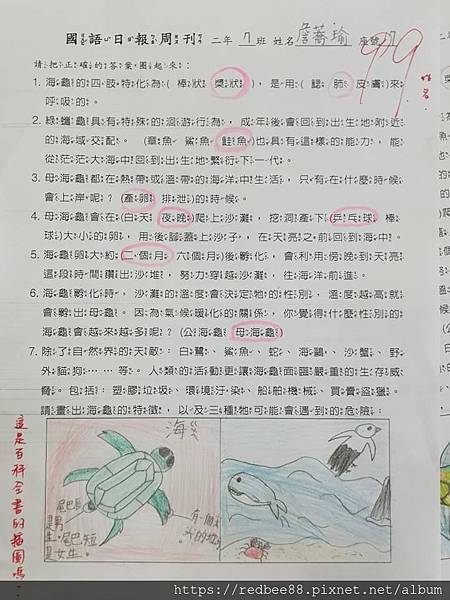 國語日報周刊 二年 7 班 姓名 詹蕎瑜 座號 17
99
姓名
請把正確的答案,圈起來:
1. 海龜的四肢特化為(棒狀 槳狀),是用(鰓 肺 皮膚)來
呼吸的。
2. 綠蠵龜具有特殊的洄游行為,成年後會回到出生地附近
的海域交配。(章魚 鯊魚 鮭魚)也具有這樣的能力,能
從茫茫大海中回到出生地繁衍下一代。
3. 母海龜都在熱帶或溫帶的海洋中生活,只有在什麼時候
會上岸呢?(產卵 排泄)的時候。
4. 母海龜會在(白天 夜晚)爬上沙灘,挖洞產下(乒乓球 棒
球)大小的卵,用後腳蓋上沙子,在天亮之前回到海中。
5. 海龜卵大約(二個月 六個月)後孵化,會利用傍晚到天亮
這段時間鑽出沙堆,努力穿越沙灘,往海洋前進。
6. 海龜孵化時,沙灘的溫度會決定牠的性別,溫度越高就
會孵出母龜。因為氣候暖化的關係,你覺得什麼性別的
海龜會越來越多呢?(公海龜 母海龜)
7. 除了自然界的天敵:白鷺、鯊魚、蛇、海鷗、沙蟹、野
外貓狗……等。人類的活動更讓海龜面臨嚴重的生存威
脅。包括:塑膠垃圾、環境汙染、船舶機械、買賣盜獵。
請畫出海龜的特徵,以及三種牠可能會遇到的危險:
海
尾巴長
是男
生,尾巴短
是女生。
有一個
這是百科全書的插圖嗎?
https://redbee88.pixnet.net/album